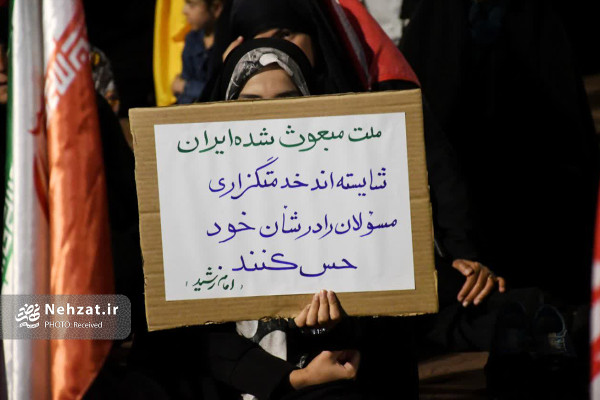 ملت مبعوث شده ایران
شایسته اند خدمتگزاری
مسؤلان را در شأن خود
حس کنند
(امام رشید)
Nehzat.ir
PHOTO: Received